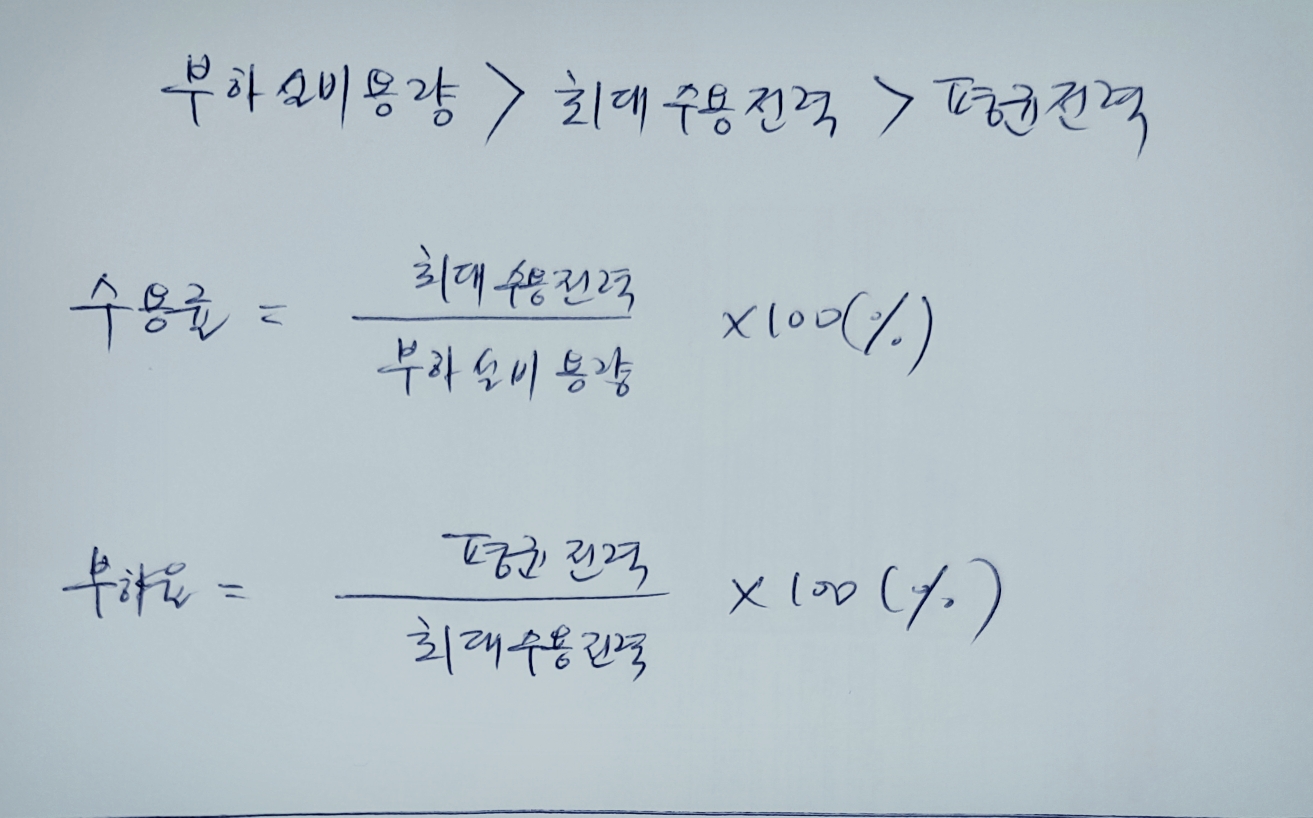 부하설비용량 > 최대수용전력 > 평균전력
수용률 = 최대수용전력 / 부하설비용량 ×100(%)
부하율 = 평균전력 / 최대수용전력 ×100(%)